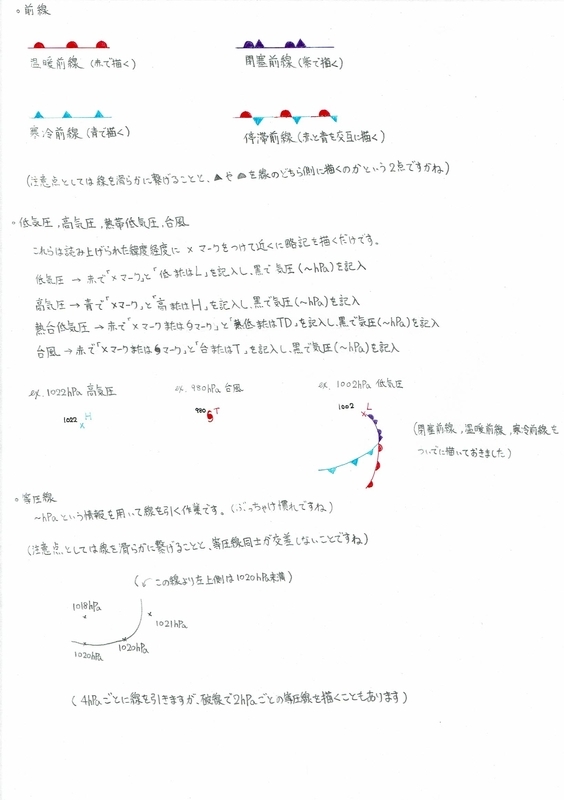 。前線
温暖前線 (赤で描く)
閉塞前線 (紫で描く)
寒冷前線 (青で描く)
停滞前線 (赤と青を交互に描く)
(注意点としては線を滑らかに繋げることと、▲や●を線のどちら側に描くのかという2点ですかね)
。低気圧,高気圧,熱帯低気圧,台風
これらは読み上げられた緯度経度に×マークをつけて近くに略記を描くだけです。
低気圧 → 赤で「×マーク」と「低 またはL」を記入し、黒で気圧(~hPa)を記入
高気圧 → 青で「×マーク」と「高 またはH」を記入し、黒で気圧(~hPa)を記入
熱台低気圧 → 赤で「×マーク または マーク」と「熱低 またはTD」を記入し、黒で気圧(~hPa)を記入
台風 → 赤で「×マーク または マーク」と「台またはT」を記入し、黒で気圧(~hPa)を記入
ex. 1022hPa 高気圧
ex. 980hPa 台風
ex. 1002hPa 低気圧
1022 H
×
980 T
1002 L
×
(閉塞前線,温暖前線,寒冷前線を
ついでに描いておきました)
。等圧線
~hPaという情報を用いて線を引く作業です。(ぶっちゃけ慣れですね)
(注意点としては線を滑らかに繋げることと、等圧線同士が交差しないことですね)
(↙この線より左上側は1020hPa未満)
1018hPa
×
1021hPa
1020hPa
1020hPa
(4hPaごとに線を引きますが、破線で2hPaごとの等圧線を描くこともあります)